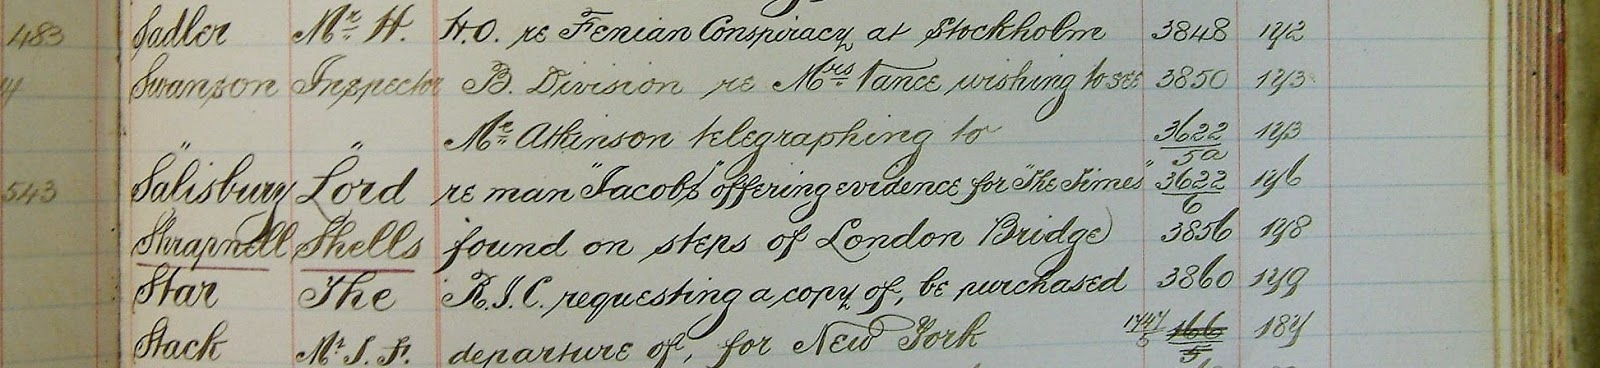 483 Sadler Mr. H. H.O. re Fenian Conspiracy at Stockholm 3848 1712
Swanson Inspector B. Division re Mrs. Vance wishing to see 3850 1713
" " Mr. Atkinson telegraphing to 3622/5a 1713
543 Salisbury Lord re man "Jacobs" offering evidence for "The Times" 3622/6 1716
Shrapnell Shells found on steps of London Bridge 3856 1718
Star The R.I.C. requesting a copy of, be purchased 3860 1719
Stack Mr. J. F. departure of, for New York